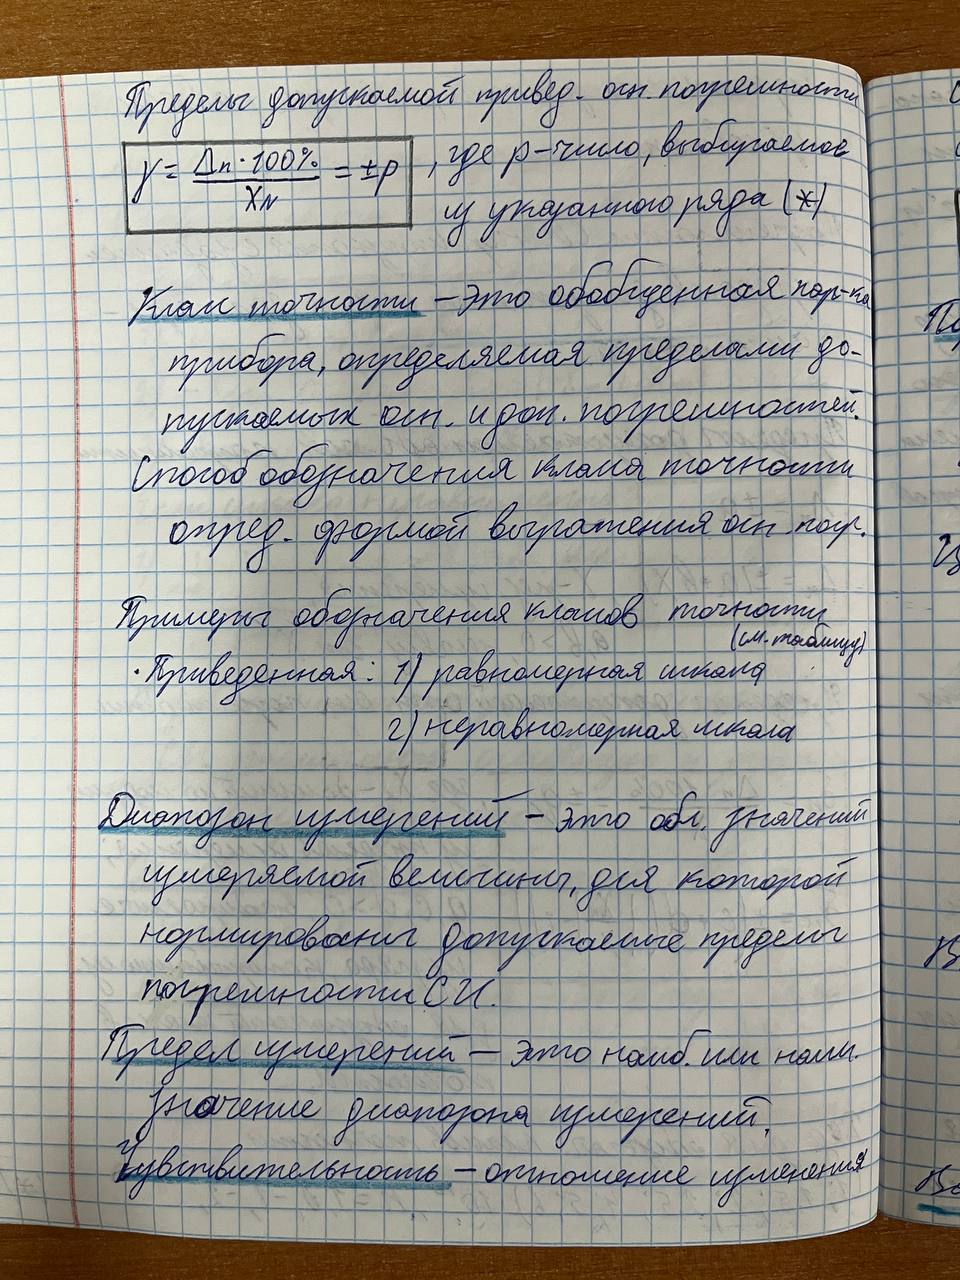 Пределы допускаемой привед. осн. погрешности
γ = Δп · 100% / X_N = ±p , где p – число, выбираемое
из указанного ряда (*)
Класс точности – это обобщенная хар-ка
прибора, определяемая пределами до-
пускаемых осн. и доп. погрешностей.
Способ обозначения класса точности
опред. формой выражения осн. погр.
Примеры обозначения классов точности
(см. таблицу)
· Приведенная: 1) равномерная шкала
2) неравномерная шкала
Диапазон измерений – это обл. значений
измеряемой величины, для которой
нормированы допускаемые пределы
погрешности СИ.
Предел измерений – это наиб. или наим.
значение диапазона измерений.
Чувствительность – отношение изменения